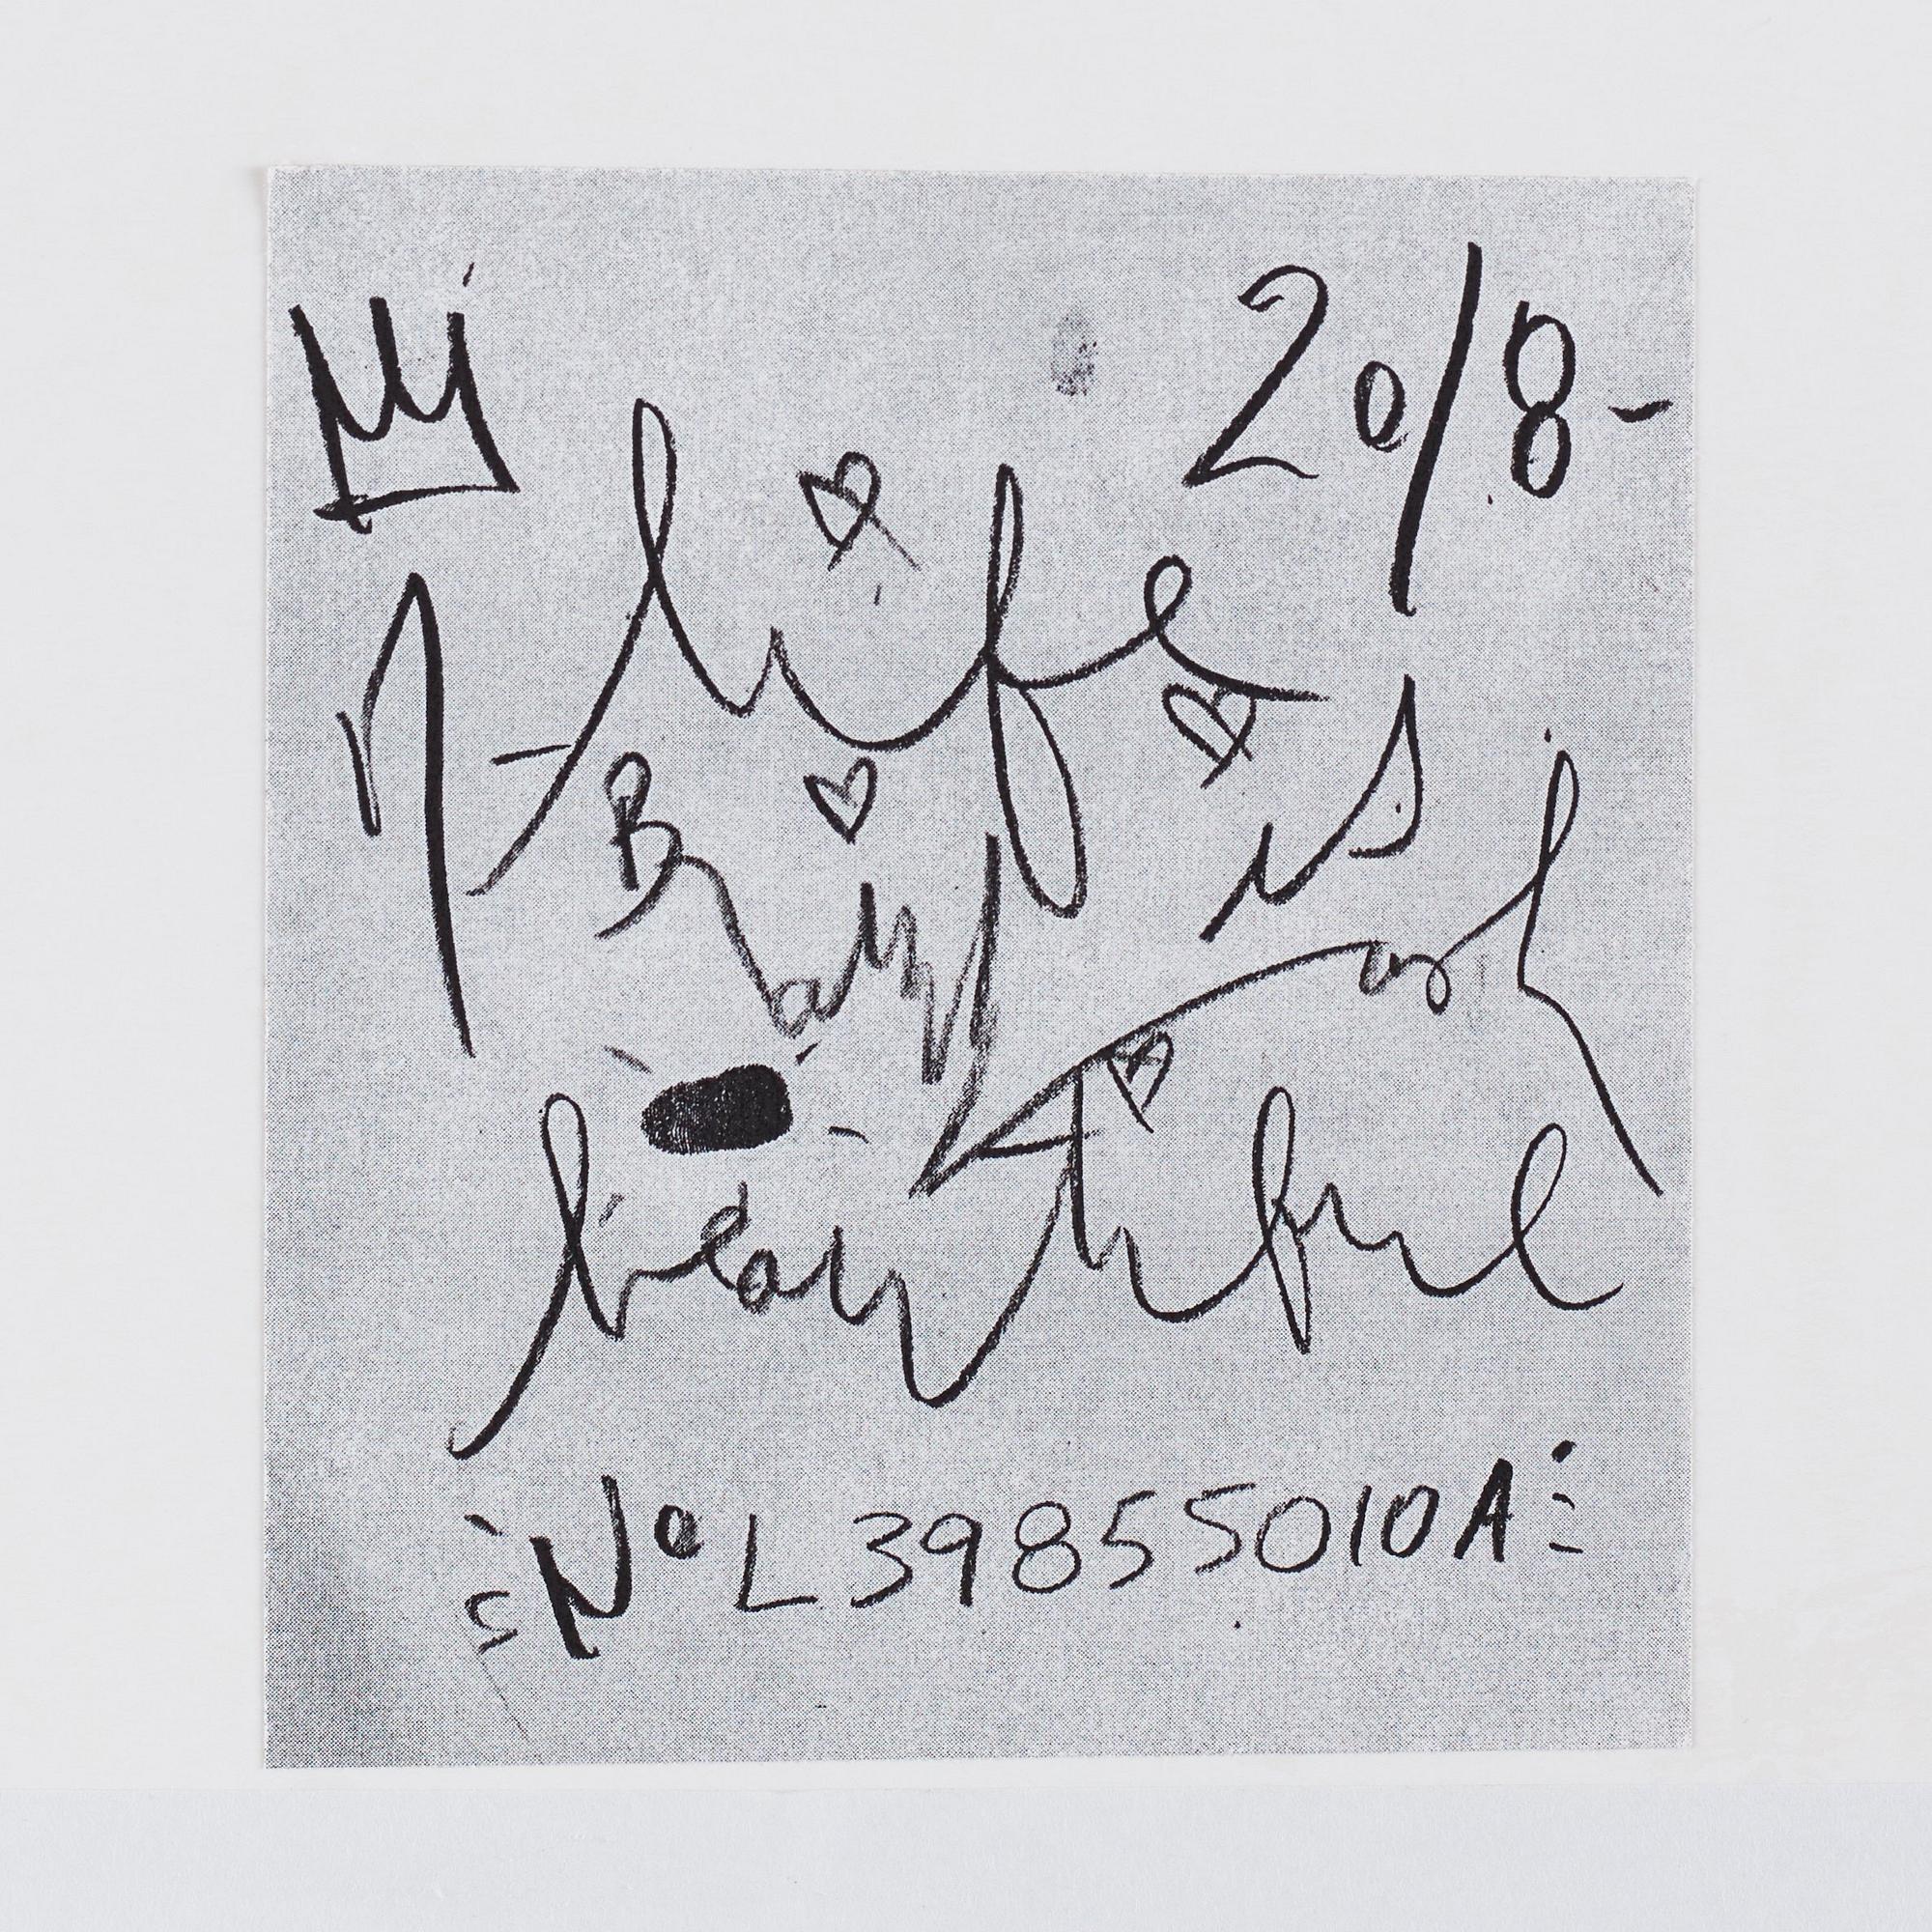 2018-
life
is
beautiful
Nº L39855010A